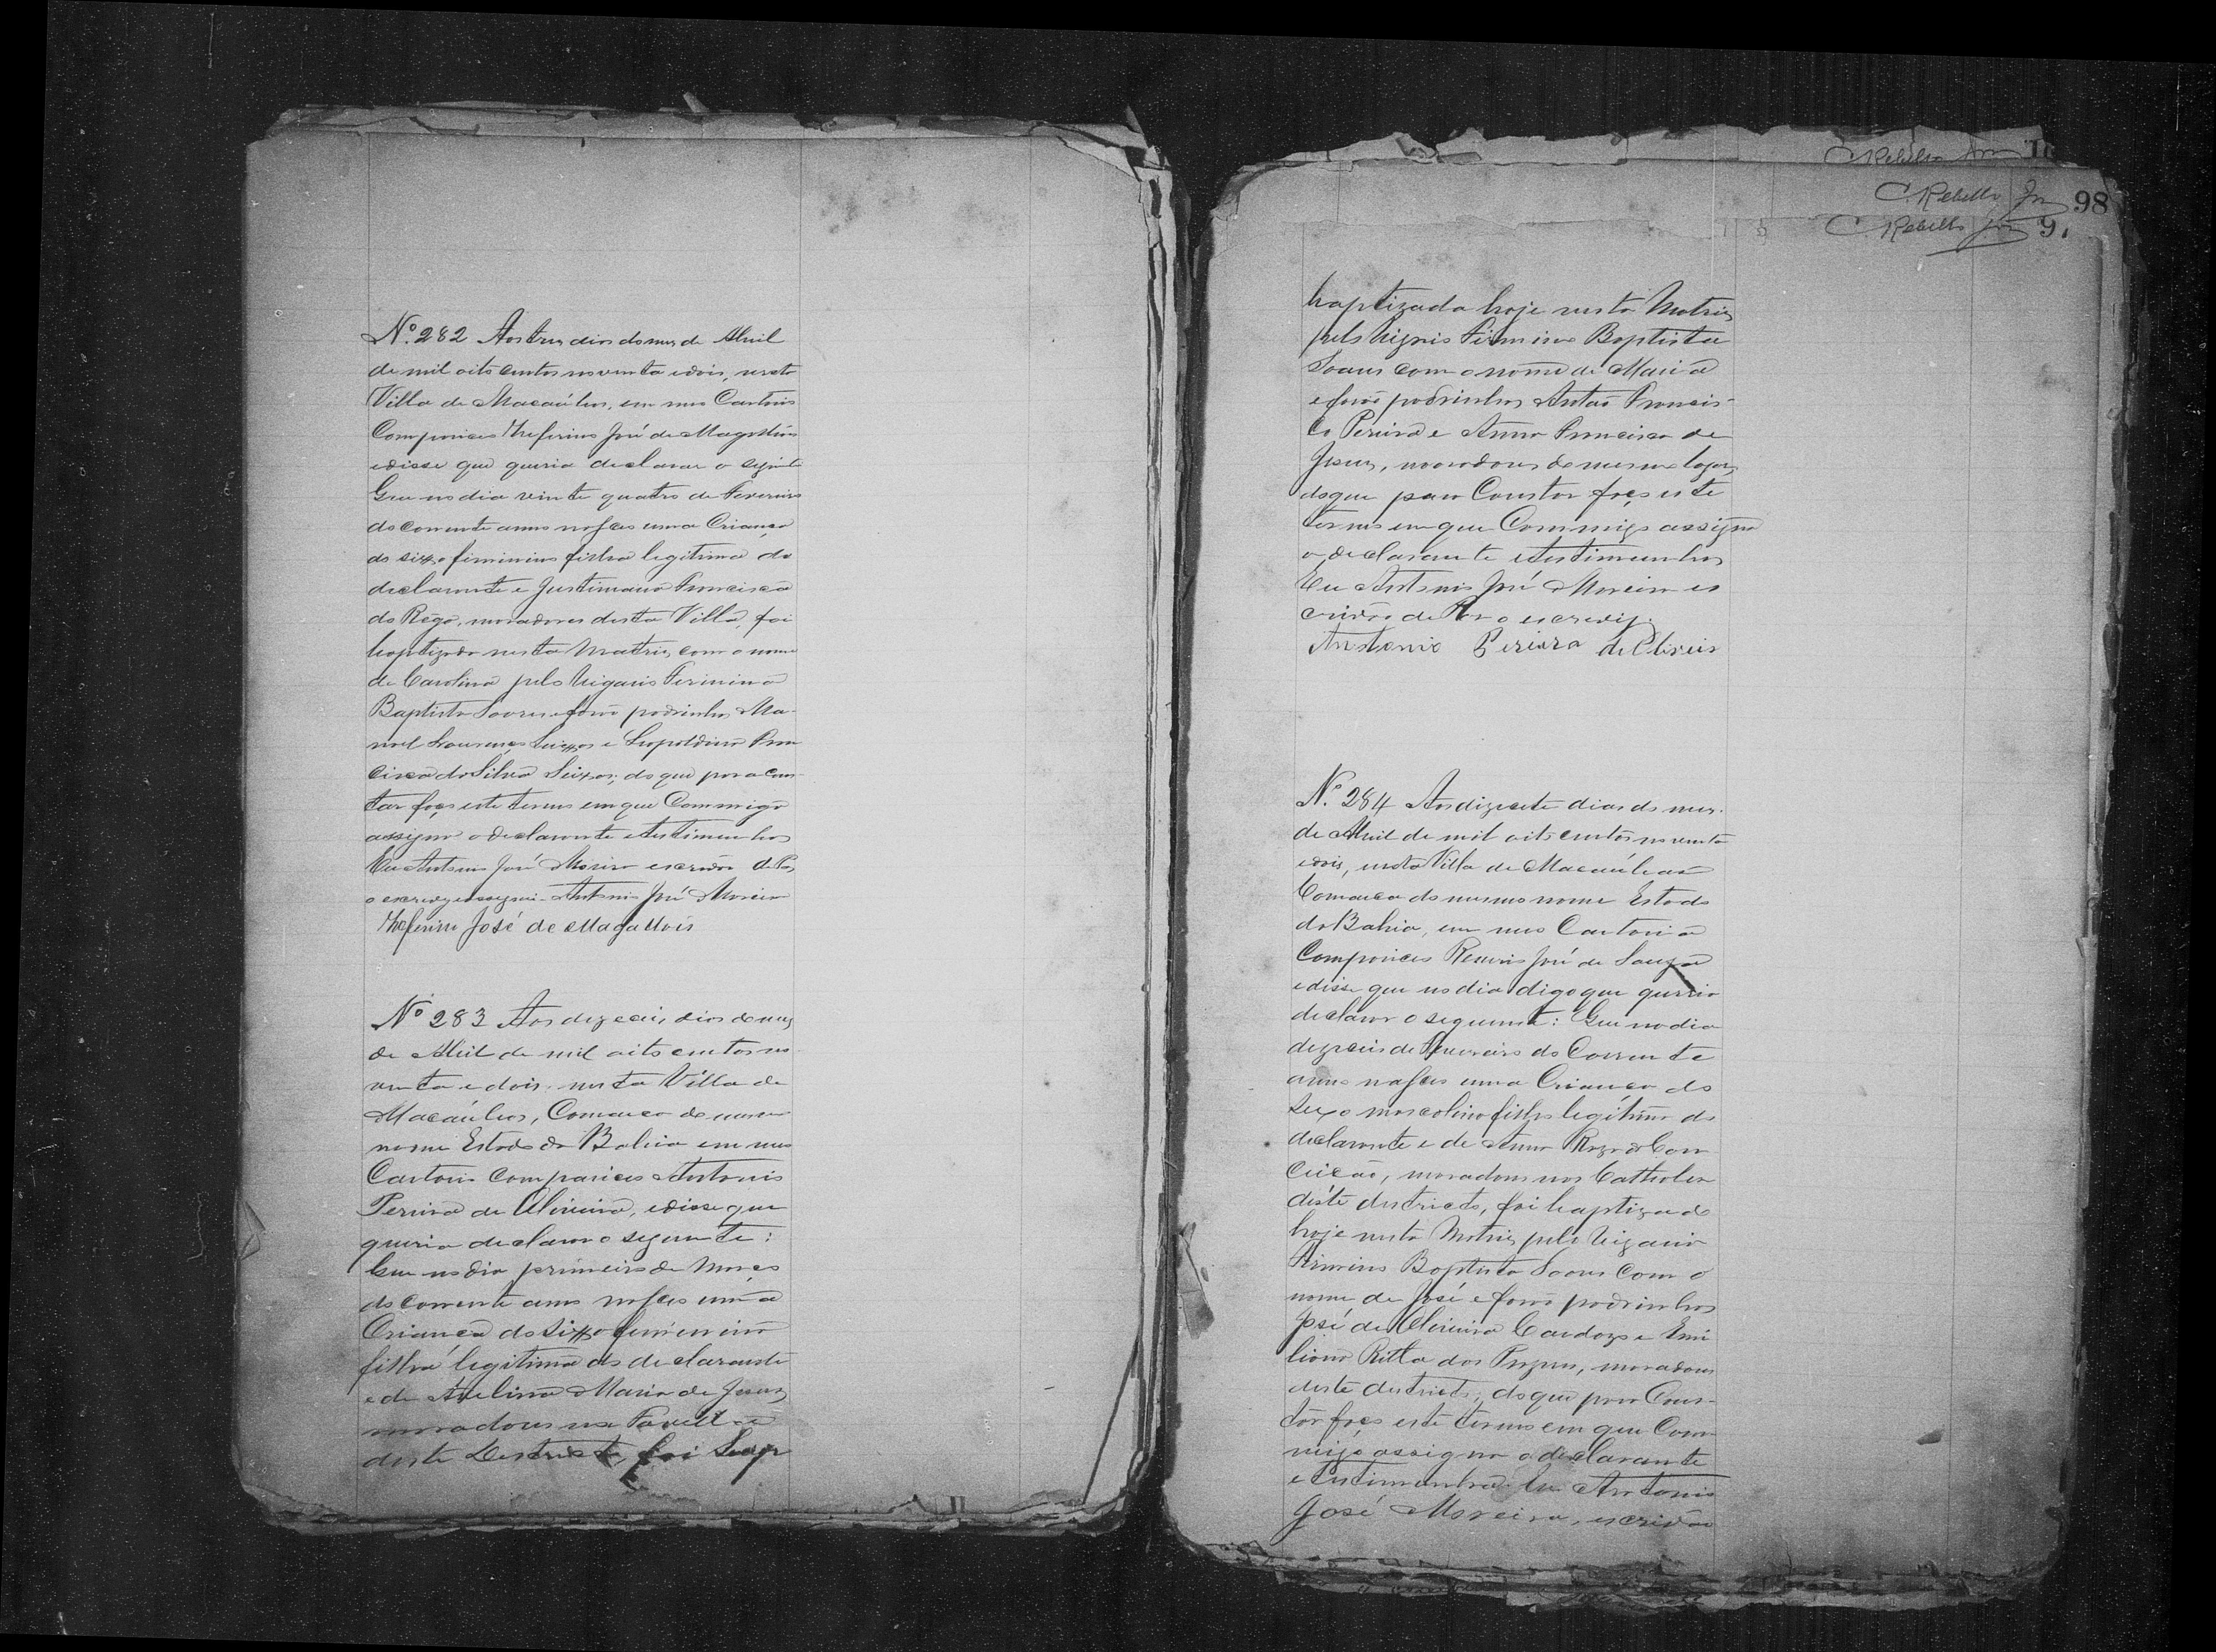 Nº 282 Aos tres dias do mes de Abril
de mil oito centos noventa e dois, nesta
Villa de Macaúbas, em meu Cartorio
Compareceo Zeferino José de Magalhães
e disse que queria declarar o seguinte
Que no dia vinte quatro de Fevereiro
do corrente anno nasceo uma Criança
do sexo feminino filha legitima do
declarante e Justiniana Francisca
do Rêgo, moradores desta Villa, foi
baptizada nesta Matriz, com o nome
de Carolina pelo Vigario Firmino
Baptista Soares e forão padrinhos Ma-
noel Lourenço Seixas e Leopoldina Fran
cisca da Silva Seixas; do que para cons-
tar faço este termo em que Commigo
assigna o declarante e testimunhas
Eu Antonio José Moreira escrivão de Paz
o escrevy e assignei. Antonio José Moreira
Zeferino José de Magalhóis
Nº 283 Aos dezeceis dias do mez
de Abril de mil oito centos no
venta e dois nesta Villa de
Macaúbas, Comarca do mesmo
nome Estado da Bahia em meu
Cartorio compareceo Antonio
Pereira de Oliveira, e disse que
queria declarar o seguinte:
Que no dia primeiro de Março
do corrente anno nasceo uma
Criança do sexo feminino
filha legitima do declarante
e de Avelina Maria de Jesus,
moradores na
deste Destricto, foi bap
C. Rebello Jor
C. Rebello Jor 98
C. Rebello Jor 9
baptizada hoje nesta Matriz
pelo Vigario Firmino Baptista
Soares com o nome de Maria
e forão padrinhos Antão Francis-
co Pereira e Anna Francisca de
Jesus, moradores do mesmo logar,
do que para Constar faço este
termo em que Commigo assigna
o declarante e testimunhas
Eu Antonio José Moreira es
crivão de Paz o escrevy.
Antonio Pereira de Oliveir
Nº 284 Aos dizecete dias do mes
de Abril de mil oito centos noventa
e dois, nesta Villa de Macaúbas
Comarca do mesmo nome Estado
da Bahia, em meu Cartorio
Compareceo José de Souza
e disse que no dia digo que queria
declarar o seguinte: Que no dia
dezeceis de Fevereiro do Corrente
anno nasceo uma Criança do
sexo mascolino filho legitimo do
declarante e de Anna Roza da Con
ceição, moradores nos
deste destricto, foi baptizado
hoje nesta Matriz pelo Vigario
Firmino Baptista Soares com o
nome de José e forão padrinhos
José de Oliveira Cardozo e Emi
liana Ritta dos moradores
deste destricto; do que para Cons-
tar faço este termo em que Com
migo assigna o declarante
e testimunhas Eu Antonio
José Moreira, escrivão